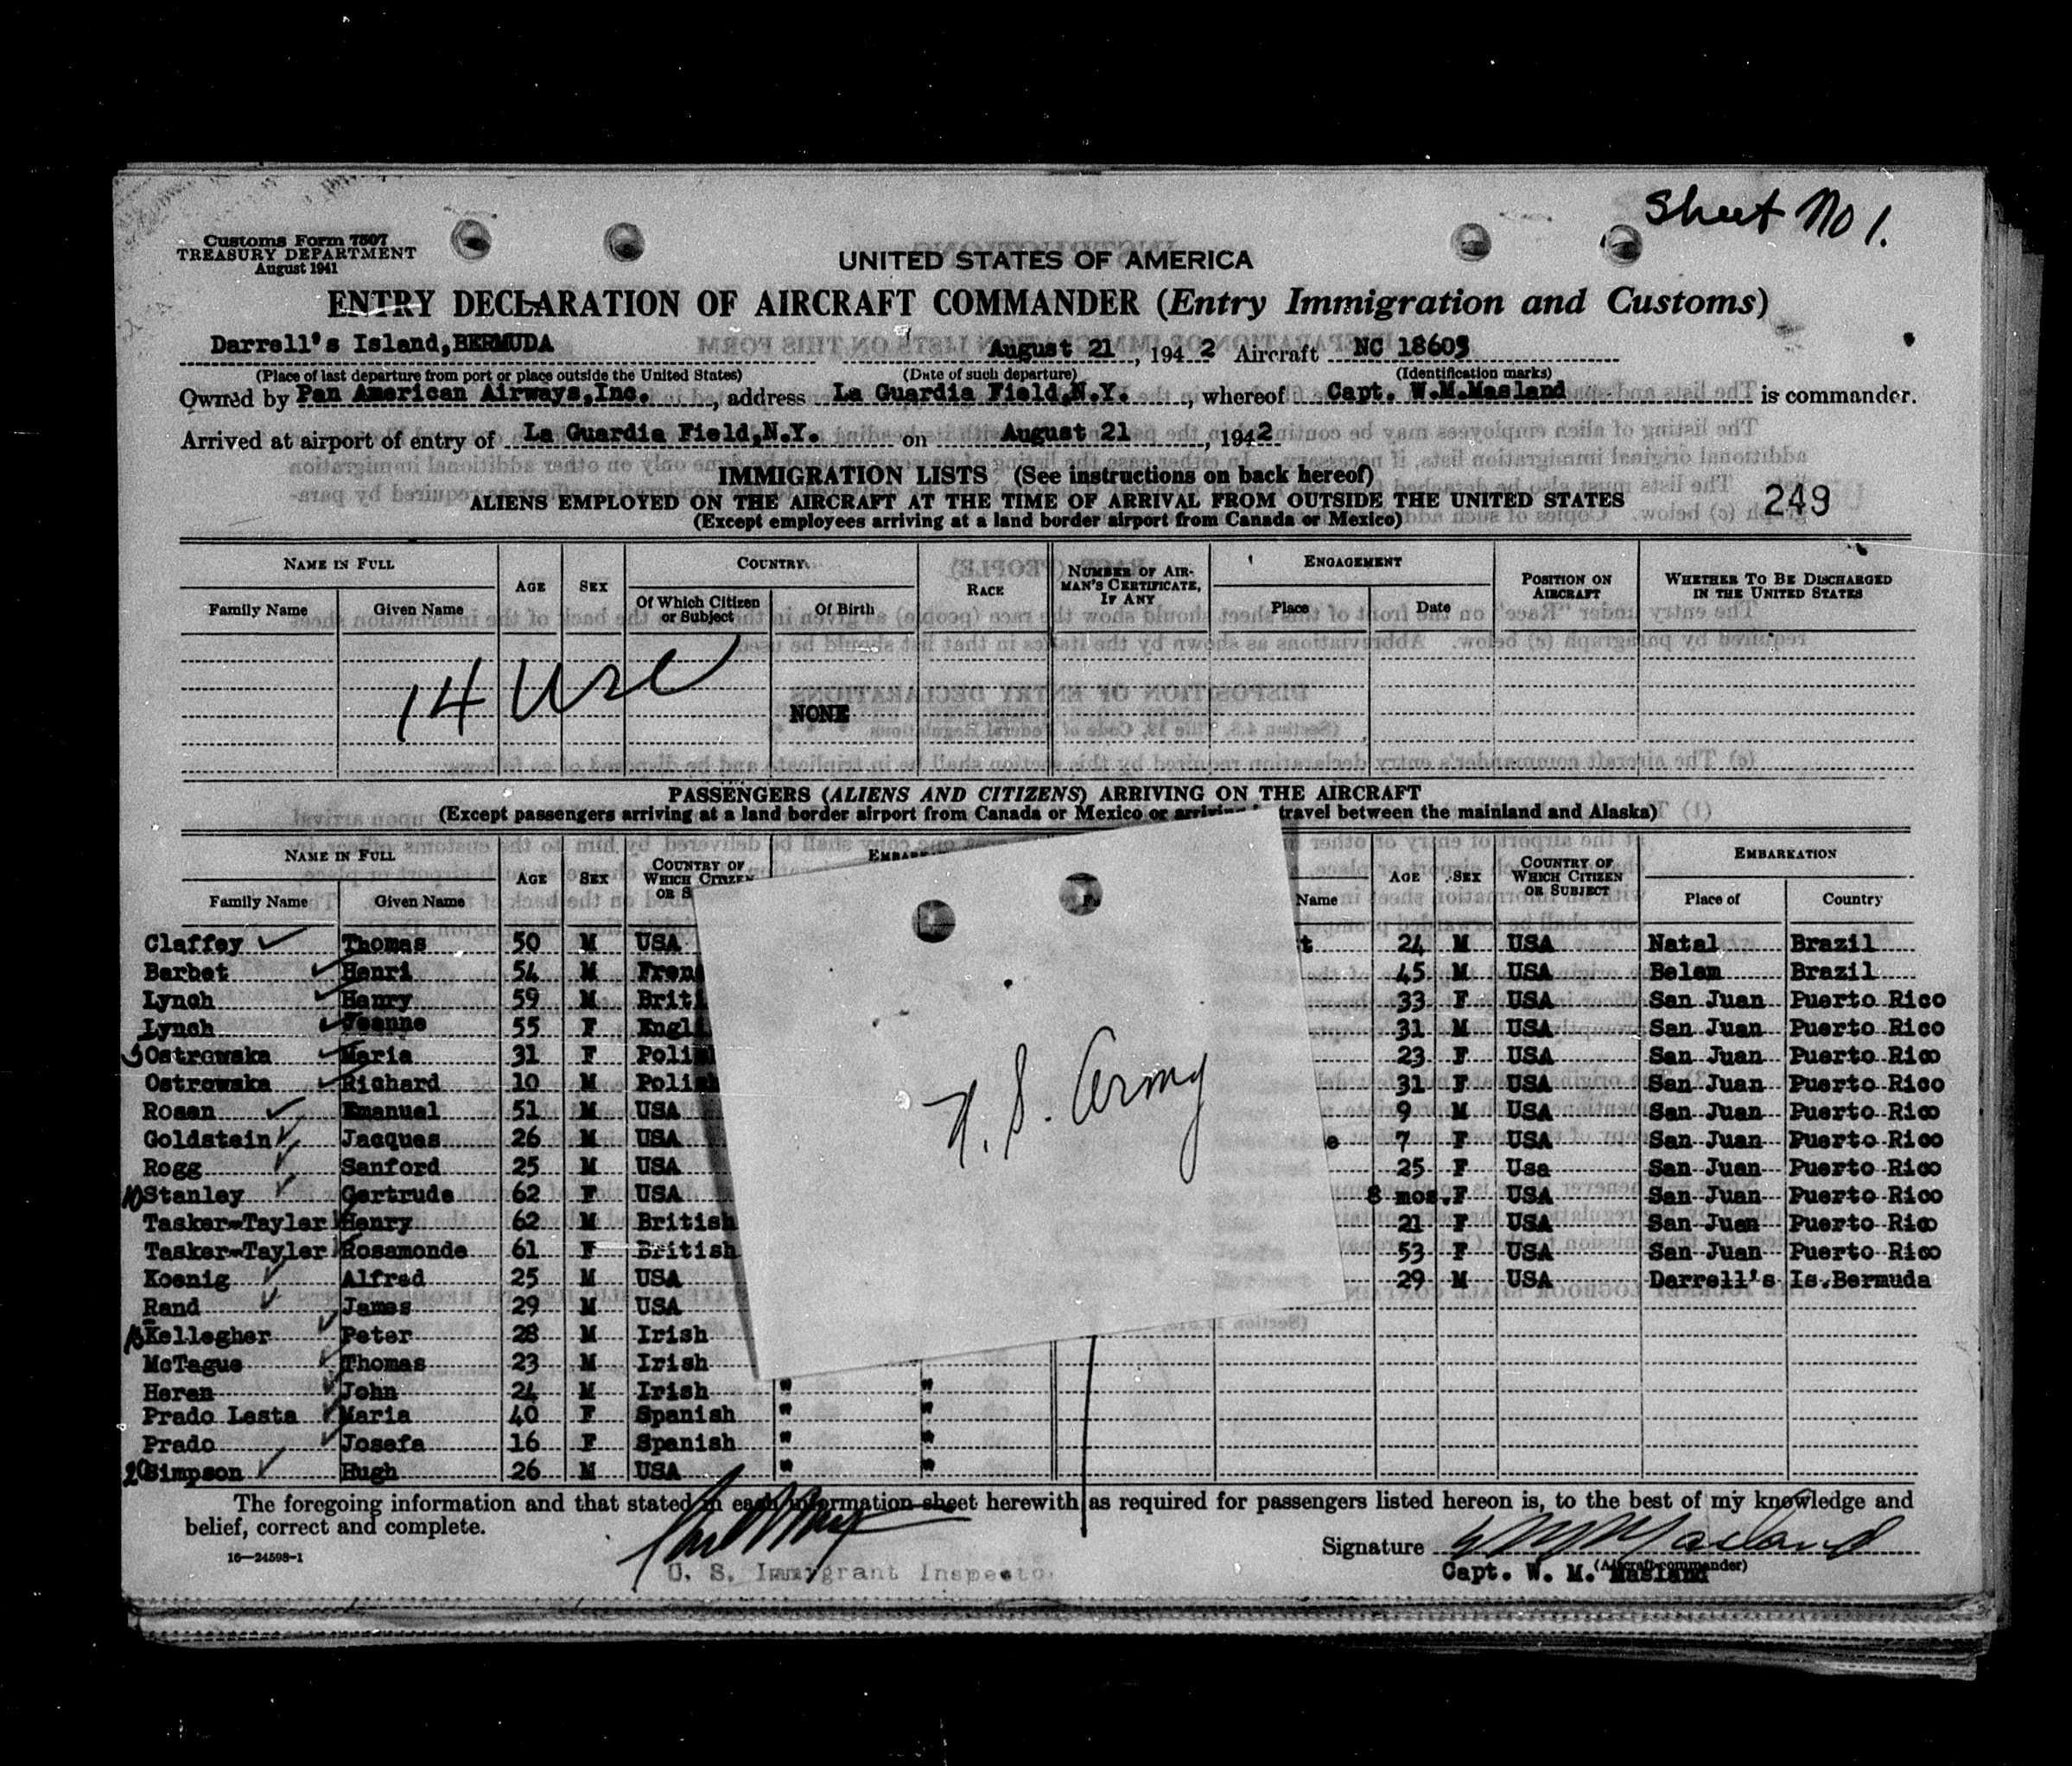 Sheet No 1.
Customs Form 7507
TREASURY DEPARTMENT
August 1941
UNITED STATES OF AMERICA
ENTRY DECLARATION OF AIRCRAFT COMMANDER (Entry Immigration and Customs)
Darrell's Island, BERMUDA August 21, 1942 Aircraft NC 18603
(Place of last departure from port or place outside the United States) (Date of such departure) (Identification marks)
Owned by Pan American Airways, Inc., address La Guardia Field, N.Y., whereof Capt. W.M.Masland is commander.
Arrived at airport of entry of La Guardia Field, N.Y. on August 21, 1942
IMMIGRATION LISTS (See instructions on back hereof)
ALIENS EMPLOYED ON THE AIRCRAFT AT THE TIME OF ARRIVAL FROM OUTSIDE THE UNITED STATES 249
(Except employees arriving at a land border airport from Canada or Mexico)
NAME IN FULL AGE SEX COUNTRY RACE NUMBER OF AIRMAN'S CERTIFICATE, IF ANY ENGAGEMENT POSITION ON AIRCRAFT WHETHER TO BE DISCHARGED IN THE UNITED STATES
Family Name Given Name Of Which Citizen or Subject Of Birth Place Date
14
NONE
PASSENGERS (ALIENS AND CITIZENS) ARRIVING ON THE AIRCRAFT
(Except passengers arriving at a land border airport from Canada or Mexico or arriving in travel between the mainland and Alaska)
NAME IN FULL AGE SEX COUNTRY OF WHICH CITIZEN AGE SEX COUNTRY OF WHICH CITIZEN OR SUBJECT EMBARKATION
Family Name Given Name Name Place of Country
Claffey Thomas 50 M USA 24 M USA Natal Brazil
Barbet Henri 54 M 45 M USA Belem Brazil
Lynch Henry 59 M 33 F USA San Juan Puerto Rico
Lynch Jeanne 55 F 31 M USA San Juan Puerto Rico
5 Ostrowska Maria 31 F 23 F USA San Juan Puerto Rico
Ostrowska Richard 10 M 31 F USA San Juan Puerto Rico
Rosen Emanuel 51 M USA 9 M USA San Juan Puerto Rico
Goldstein Jacques 26 M USA 7 F USA San Juan Puerto Rico
Rogg Sanford 25 M USA 25 F Usa San Juan Puerto Rico
10 Stanley Gertrude 62 F USA 8 mos. F USA San Juan Puerto Rico
Tasker-Tayler Henry 62 M British 21 F USA San Juan Puerto Rico
Tasker-Tayler Rosamonde 61 F British 53 F USA San Juan Puerto Rico
Koenig Alfred 25 M USA 29 M USA Darrell's Is.Bermuda
Rand James 29 M USA
15 Kellegher Peter 28 M Irish
McTague Thomas 23 M Irish
Heran John 24 M Irish " "
Prado Lesta Maria 40 F Spanish " "
Prado Josefa 16 F Spanish " "
20 Simpson Hugh 26 M USA " "
U. S. Army
The foregoing information and that stated in each information sheet herewith as required for passengers listed hereon is, to the best of my knowledge and
belief, correct and complete.
16—24598-1
U. S. Immigrant Inspector
Signature W M Masland
(Aircraft commander)
Capt. W. M. Masland